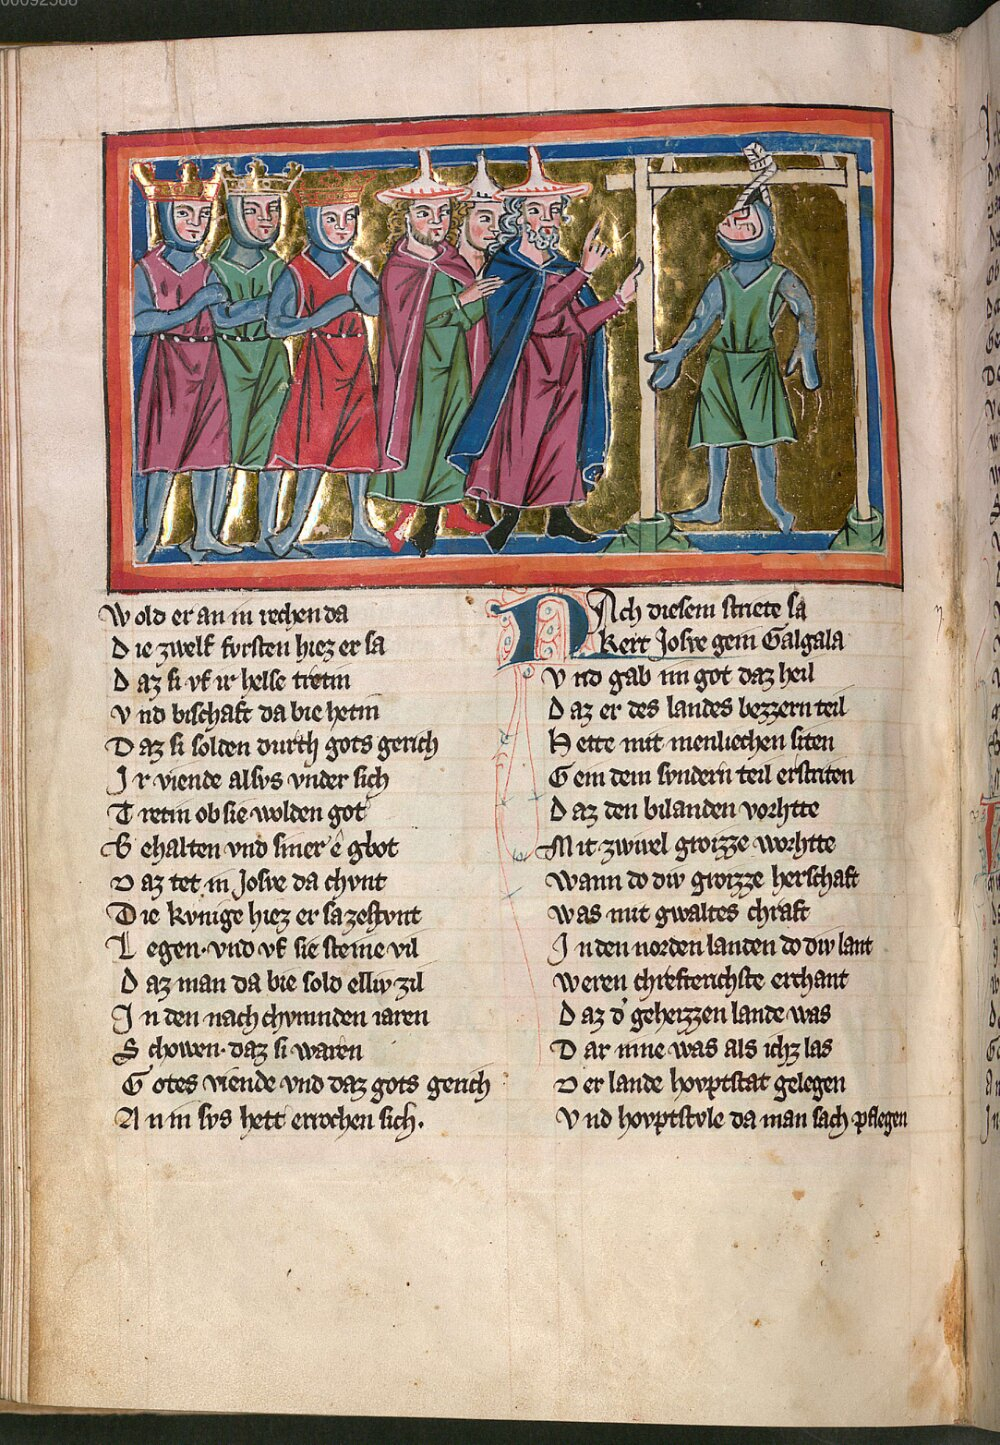 Wold er an in rechen da
Die zwelf fvrsten hiez er sa
Daz si vf ir helse tretin
Vnd bischaft da bie hetin
Daz si solden durch gots gerich
Ir viende alsvs vnder sich
Tretin ob sie wolden got
Behalten vnd siner e gbot
Daz tet in Josve da chvnt
Die kvnige hiez er sa zestvnt
Legen. vnd vf sie steine vil
Daz man da bie sold elliv zil
In den nach chvmnden iaren
Schowen. daz si waren
Gotes viende vnd daz gots gerich
An in svs hett errochen sich.
Nach diesem striete sa
Kert Josve gein Galgala
Vnd gab im got daz heil
Daz er des landes bezzern teil
Hette mit menliechen siten
Gein dem svndern teil erstriten
Daz den bilanden vorhtte
Mit zwivel groizze worhtte
Wann do div groizze herschaft
Was mit gwaltes chraft
In den norden landen do div lant
Weren chrefterichste erchant
Daz d' geheizzen lande was
Dar inne was als ichz las
Der lande hovptstat gelegen
Vnd hovptstvle da man sach pflegen